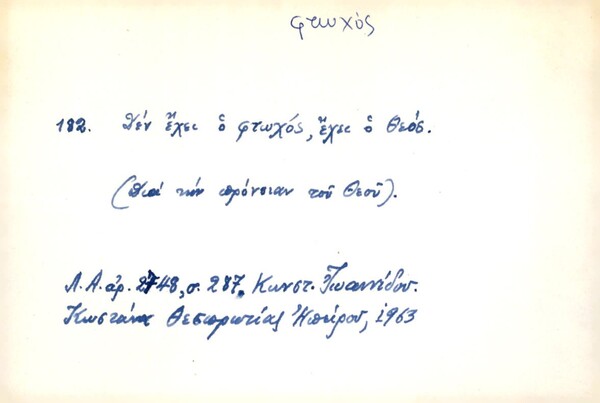 φτωχός
182. Δέν ἔχει ὁ φτωχός, ἔχει ὁ Θεός.
(Διά τήν πρόνοιαν τοῦ Θεοῦ).
Λ.Α. ἀρ. 2748, σ. 287, Κωνστ. Ἰωαννίδου.
Κωστάνα Θεσπρωτίας Ἠπείρου, 1963